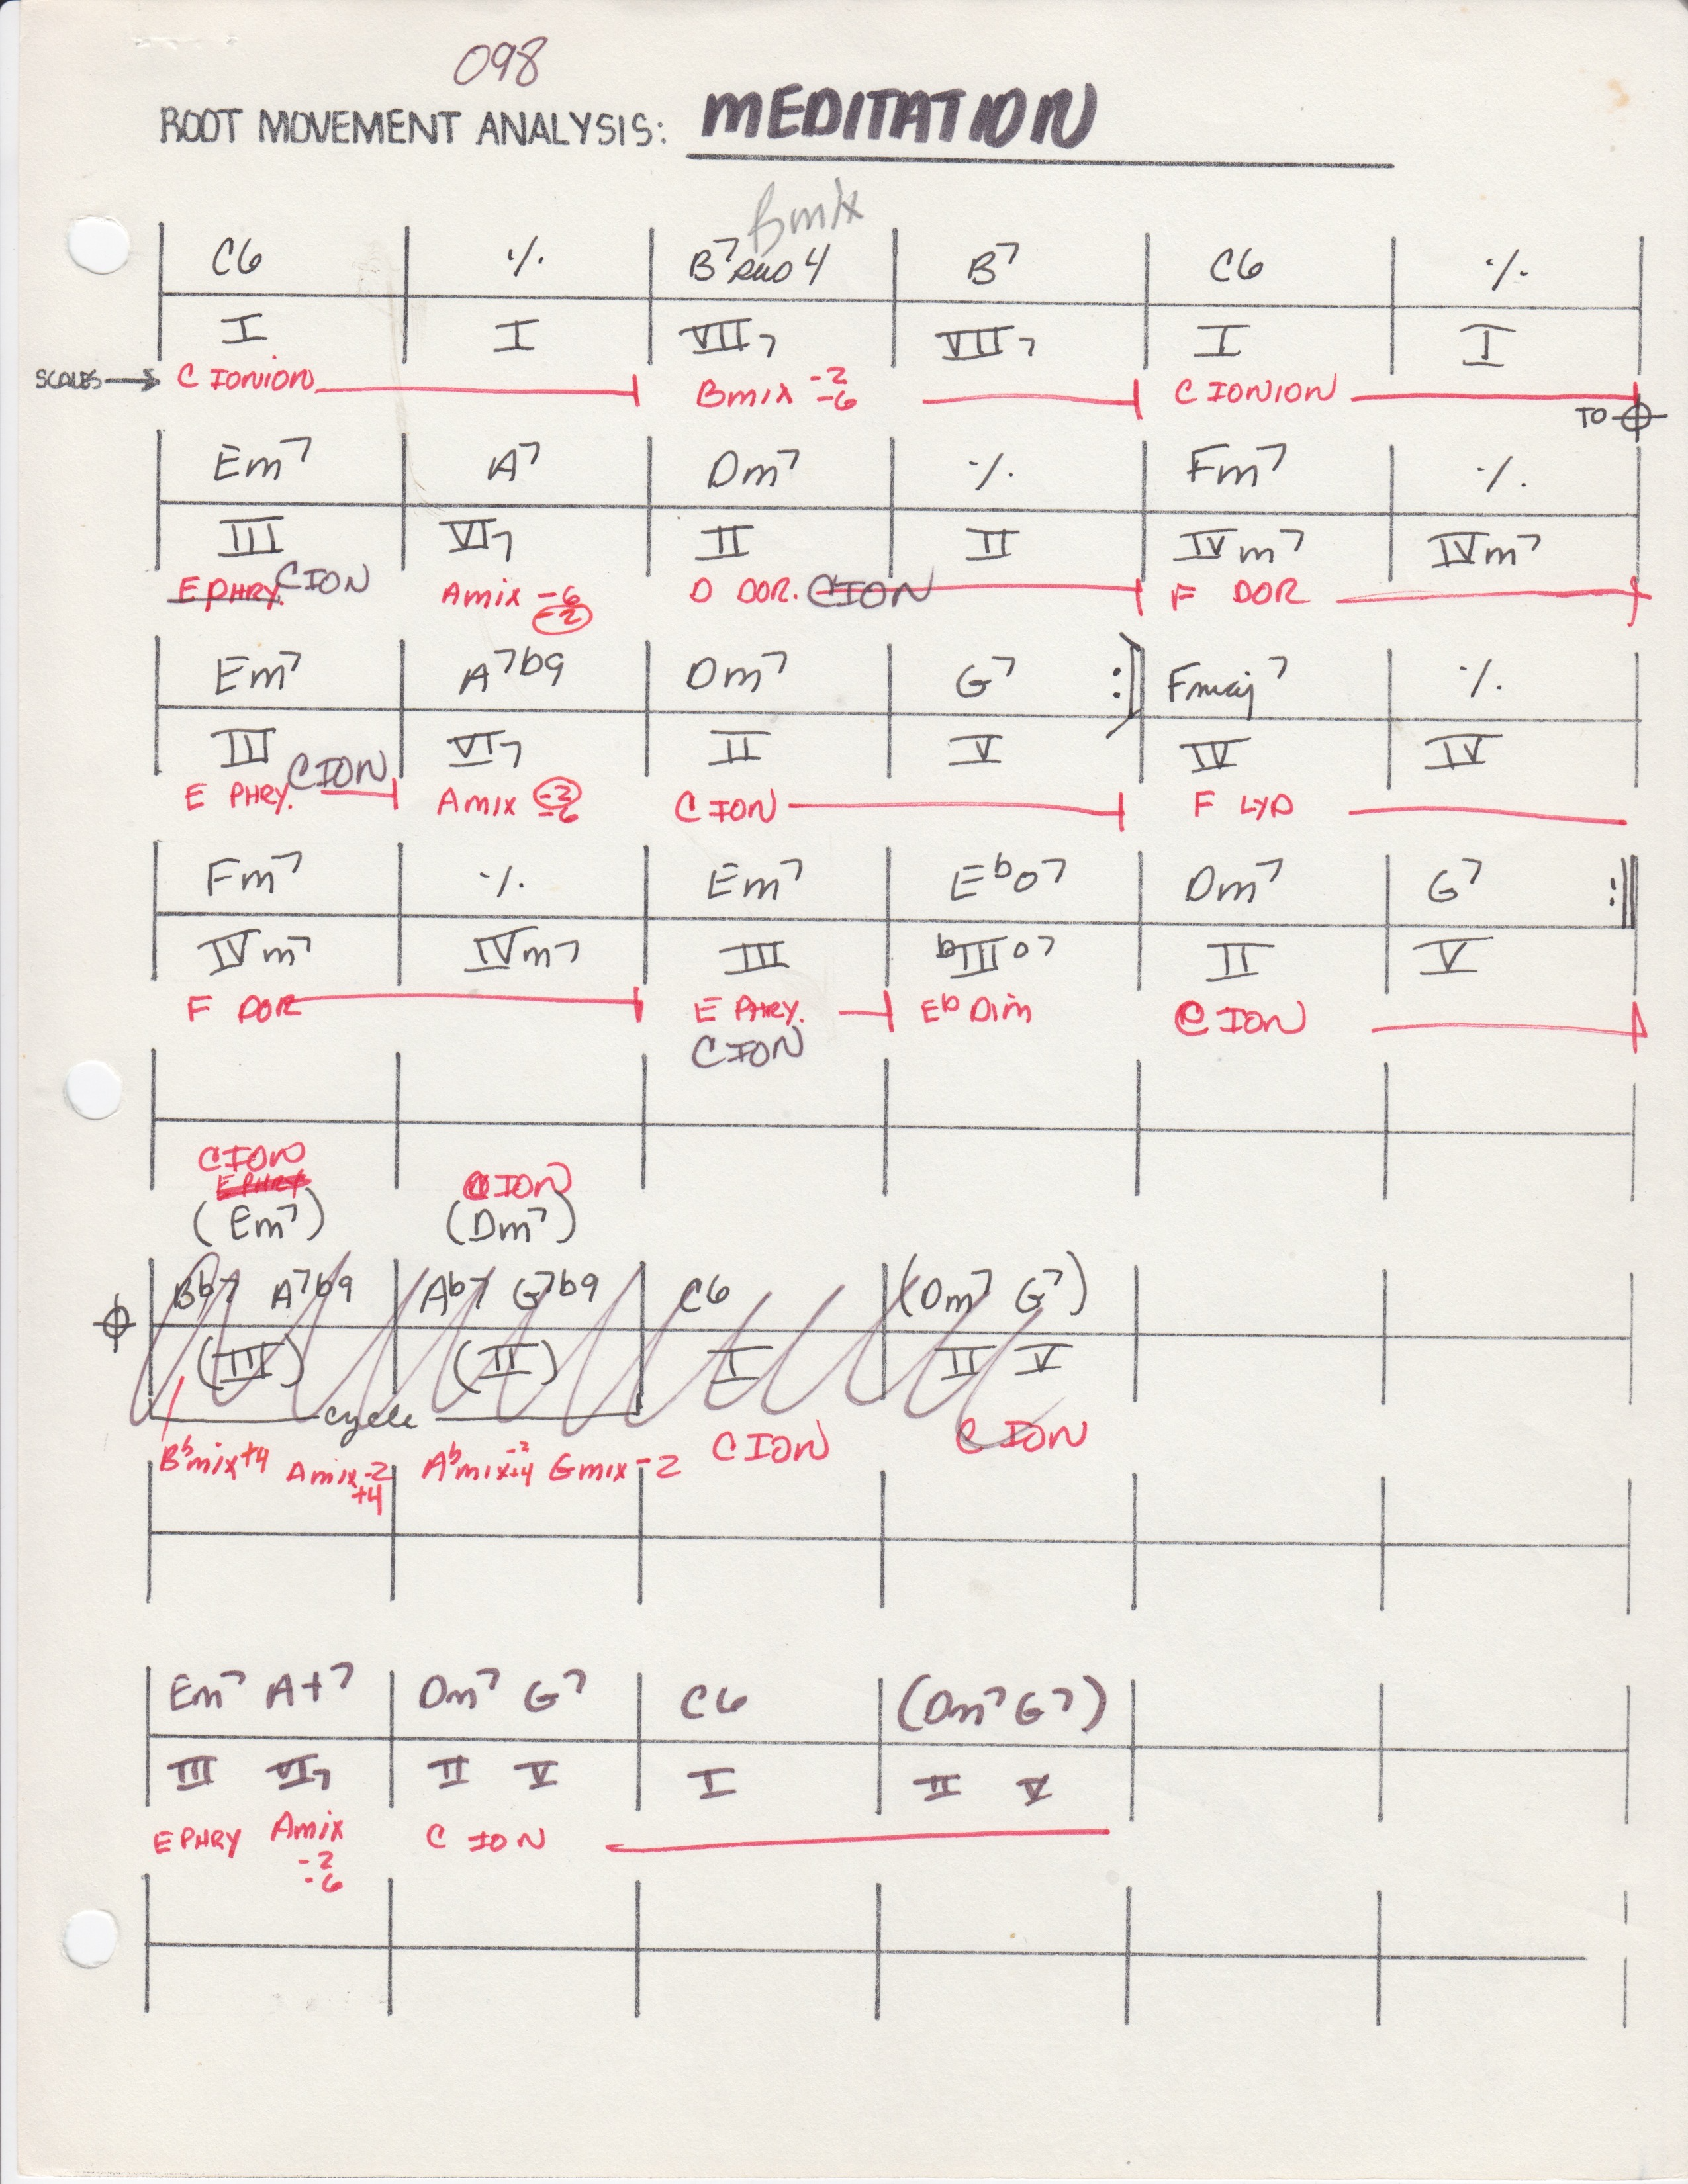 098
ROOT MOVEMENT ANALYSIS: MEDITATION
Bmix
C6 ٪ B7sus4 B7 C6 ٪
I I VII7 VII7 I I
SCALES → C IONION Bmix -2 -6 C IONION
TO
Em7 A7 Dm7 ٪ Fm7 ٪
III VI7 II II IVm7 IVm7
E PHRY. C ION Amix -6 -2 D DOR. C ION F DOR
Em7 A7b9 Dm7 G7 :] Fmaj7 ٪
III VI7 II V IV IV
E PHRY. C ION Amix -2 -6 C ION F LYD
Fm7 ٪ Em7 Ebo7 Dm7 G7 :||
IVm7 IVm7 III bIIIo7 II V
F DOR E PHRY. Eb Dim C ION
C ION
C ION
E PHRY C ION
(Em7) (Dm7)
Bb7 A7b9 Ab7 G7b9 C6 (Dm7 G7)
(III) (II) I II V
cycle
Bbmix+4 Amix-2 +4 Abmix-2 +4 Gmix-2 C ION C ION
Em7 A+7 Dm7 G7 C6 (Dm7 G7)
III VI7 II V I II V
E PHRY Amix C ION
-2
-6